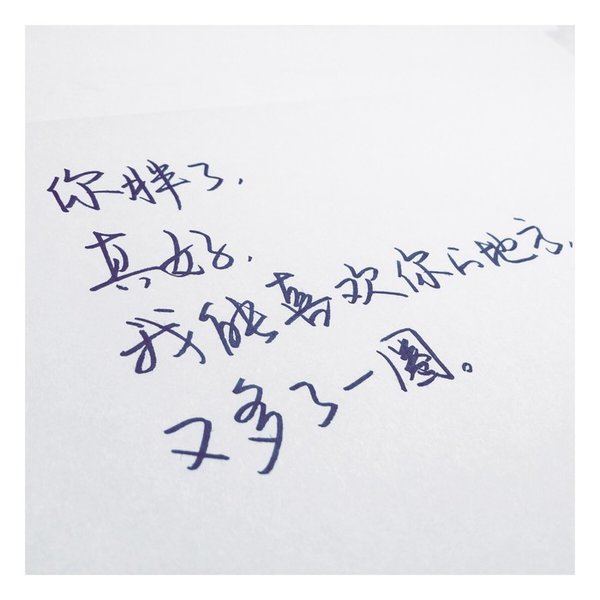 你胖了.
真好.
我能喜欢你的地方.
又多了一圈。